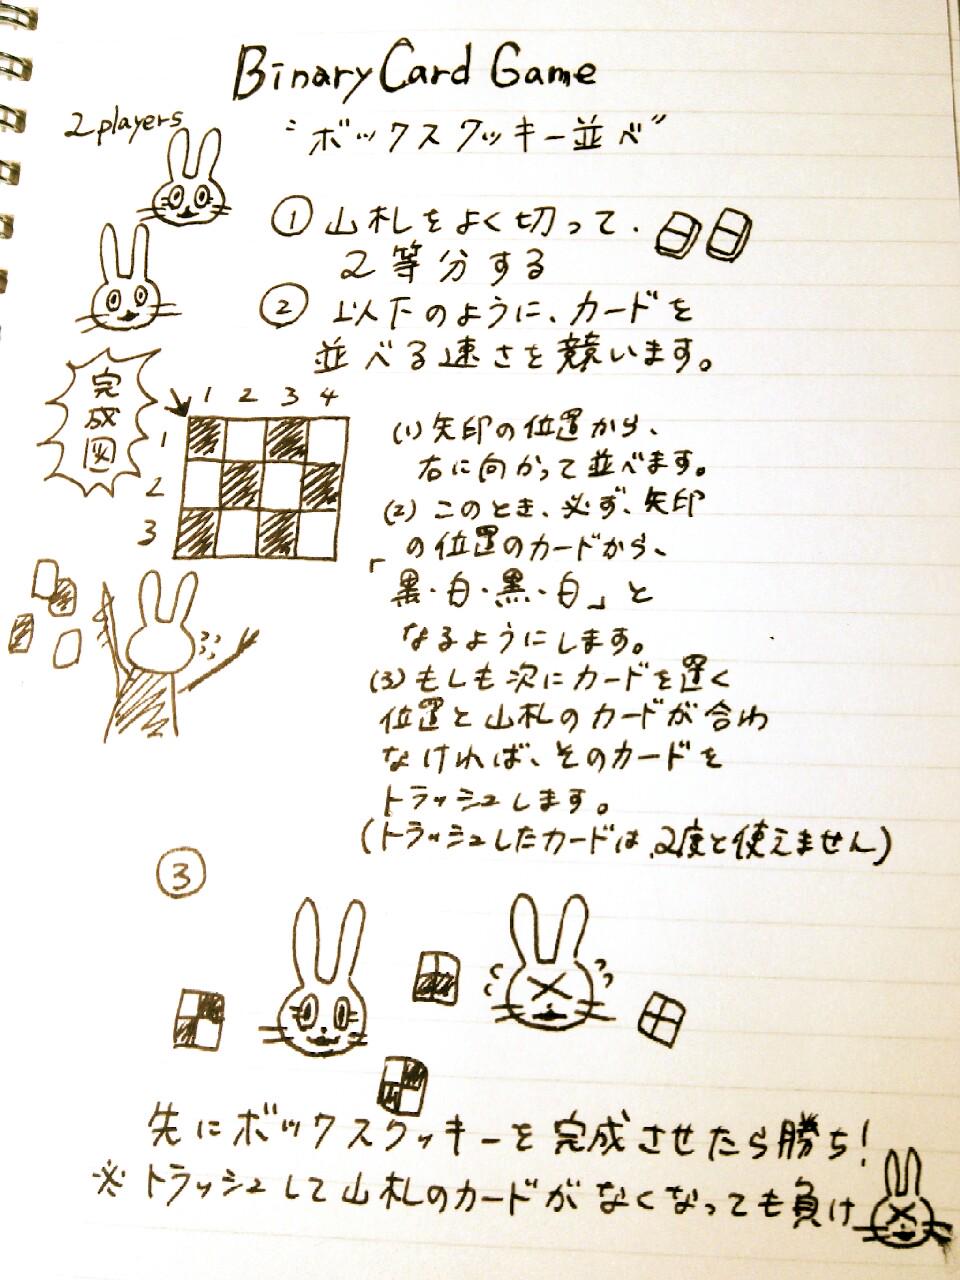 Binary Card Game
2players
"ボックスクッキー並べ"
① 山札をよく切って、
2等分する
② 以下のように、カードを
並べる速さを競います。
完成図
1 2 3 4
1
2
3
(1) 矢印の位置から、
右に向かって並べます。
(2) このとき、必ず、矢印
の位置のカードから、
「黒・白・黒・白」と
なるようにします。
(3) もしも次にカードを置く
位置と山札のカードが合わ
なければ、そのカードを
トラッシュします。
(トラッシュしたカードは、2度と使えません)
③
先にボックスクッキーを完成させたら勝ち!
※トラッシュして山札のカードがなくなっても負け